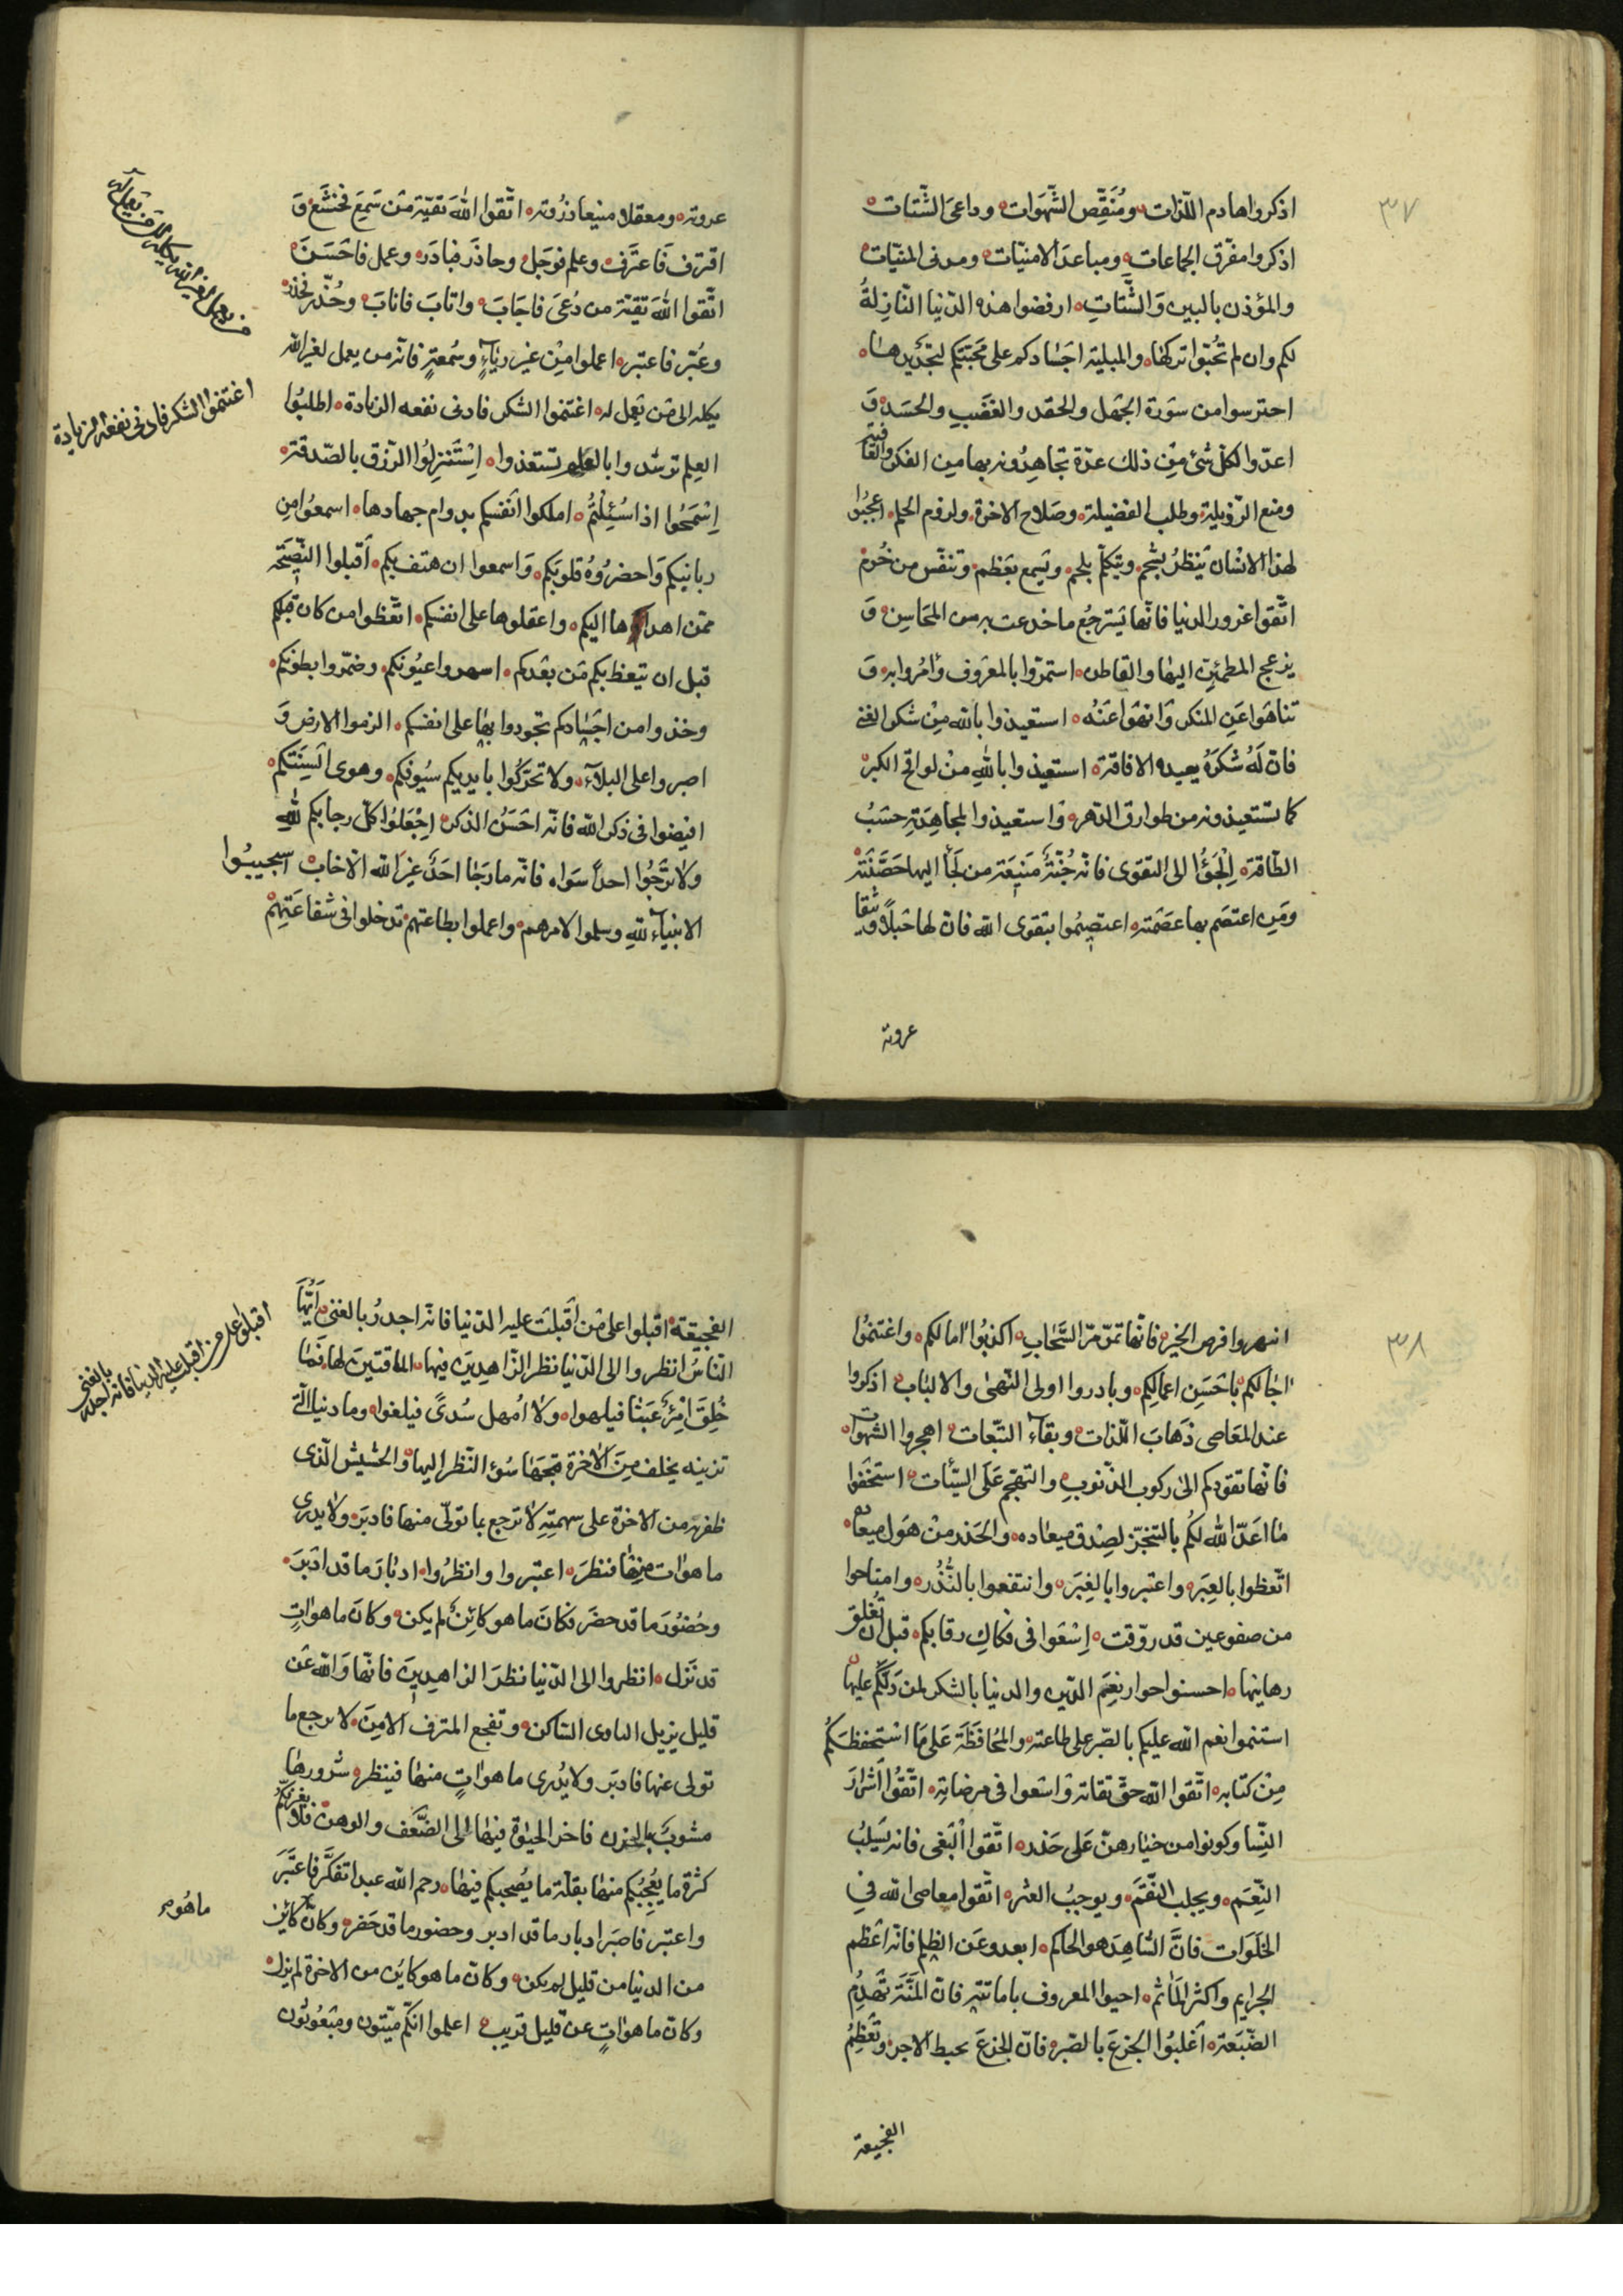 ٣٧
اذكروا هادم اللّذات ومُنَقِّص الشَّهَوات وداعىَ الشَّتات
اذكروا مفرّق الجماعات ومباعدَ الامنيّات ومدنى المنيّات
والمؤذن بالبين وَالشَّتاتِ ارفضوا هذه الدّنيا التّازِلةُ
لكم وان لم تُحبّوا تركها والمبلية اجَسادكم على محَبّتكم لتجديدها
احترسوا من سَورة الجهل والحقد والغَضَبِ والحسَد وَ
اعدّوا لكلّ شئ مِن ذلك عدّة تجاهِدُونه بها مِن الفكر فى العاقبة
ومنع الرّذيلة وطلب الفضيلة وصَلاح الاخرة ولزوم الحلم اعجبُوا
لهذا الانسان يَنظرُ بشحم ويتكلّم بلحم ويَسمع بعَظم وتنفّس من خُرم
اتّقوا غرور الدنيا فانّها يَسترجُع ما خدعت به من المحَاسِن وَ
يزعج المطمئِن اليها والقاطن استمرّوا بالمعَروف وَأمُروا به وَ
تناهَوا عَنِ المنكر وَانهَوا عَنْهُ استعيذوا بالله مِنْ سُكر الغنى
فانّ لَهُ سُكرةً بعيده الافاقة استعيذوا باللهِ منْ لواقح الكبر
كما تستعيذونه من طوارق الدّهر وَاستعيذوا لمجاهِدَتِه حَسَبُ
الطّاقة اِلْجَؤُا الى التقوى فانّه جُنّةٌ مَنيَعَة من لَجأ اليها حَصَّنَتْه
ومَنِ اعتصَم بها عصَمته اعتصِمُوا بتقوى الله فانّ لها حَبلاً وثيقا
عروته
عروته ومعقلا منيعا ذُروته اتّقوا اللهَ تقيّة مَن سَمِعَ فخشَعَ وَ
اقترف فَاعتَرف وعلم فوَجَل وحاذَر فبادَر وعمل فاحَسَنَ
اتّقوا اللهَ تقيّة من دُعىَ فاجَابَ واتابَ فانابَ وحُذّر فحَذر
وعُبّر فاعتبر اعملوا مِنْ غير رِياءٍ وسُمعةٍ فانّه من يعمل لغير الله
يكله الى مَن يَعْمل له اغتنموا الشكر فادنى نفعه الزيادة اطلبُوا
العِلم ترشدوا بالعلم تستعذوا اِسْتَنزِلُوا الرّزق بالصّدقة
اِسْمَحُوا اذا سُئِلْتُم املكوا انفسَكم بدوام جهادها اسمعُوا مِن
ربانيكم وَاحضروُه قلوبَكم وَاسمعوا ان هتف بكم اَقبلوا النّصيَحة
ممّن اهداها اليكم واعقلوها على انفسكم اتّعظوا من كان قبلكم
قبل ان يتعظ بكم مَن بعَدكم اسهروا عيُونكم وضمّروا بطونكم
وخذوا من اجسَادكم تجودوا بها على انفسكم الزموا الارض وَ
اصبروا على البلآءِ ولا تحرّكُوا بايديكم سيُوفكم وهوى اَلسِنَتكم
افيضوا فى ذكر الله فانّه احَسَنُ الذكر اِجْعَلُوا كلّ رجائكم للهِ
ولا تَرْجُوا احداً سَواه فانّه ما رَجَا احَدٌ غيرَ الله الّا خابَ اسجيببُوا
الانبيآء للهِ وسلموا الامرهم واعملوا بطاعتهم تدخلوا فى شفاعَتِهِمْ
اغتنموا الشكر فادنى نفعه الزيادة
٣٨
انتهروا فرص الخير فانها تمرّ مرّ السَّحابِ اكذبُوا امالكم واغتنموُا
اجالكم باَحْسَنِ اعمالِكم وبادروا اولى النّهىٰ والالبَابِ اذكروا
عند المعَاصى ذَهابَ اللّذات وبقآء التّبعات اهجروا الشهوات
فانّها تقودكم الىٰ ركوب الذّنوبِ والتهجّم عَلَى السَّيّآت استحقوا
ما اعَدّ الله لكُم بالتنجّز لصِدق ميعاده والحَذر منْ هَول ميعاده
اتّعظوا بالعِبَر واعتبروا بالغِيَر وانتفعوا بالنُّذُر وامتاحوا
من صفو عين قد روّقت اِسْعَوا فى فكاكِ رقابكم قبل ان تُغلق
رهاينها احسنوا جوار نِعَم الدّين والدنيا بالشكر لمن دَلّكُمْ عليها
استتموا نعم الله عليكم بالصّبر على طاعته والمُحافَظَة عَلى مَا استَحفظَكُم
مِنْ كتابه اتّقوا الله حقّ تقاته وَاسْعوا فى مرضاتِه اتّقُوا اَشْرارَ
النِّسا وكونوا من خيارهنّ عَلى حَذر اتّقوا اْلبَغى فانه يَسلِبُ
النّعَم ويجلب النّقَمَ ويوجبُ الغِيَر اتّقوا معاصى الله فى
الخَلَوات فانَّ الشّاهِدَ هو الحاكم ابعدو عَن الظلم فانّه اعَظم
الجرايم واكثر الَمآثم احيوا المعروف باماتته فانّ المنَّةَ تَهدِمُ
الصّنيَعة اَغلبُوا الجَزعَ بالصّبر فانّ الجزعَ يحبط الاجر وتُعظِمُ
الفجيعة
الفجيعَة اقبلوا على مَن اَقبلتْ عليه الدّنيا فانّه اجدرُ بالغنى اَيُّهَا
النّاسُ انظروا الى الدّنيا نظر الزّاهِدِينَ فيها الماقتينَ لها فَمَا
خُلِقَ امْرِئٌ عَبَثا فيلهو ولا اُمهل سُدىً فيلغو وما دنيا الّتى
تزينه بخلف مِنَ الاٰخرة قبّحَها سُوء النّظر اليها والخشيش الّذى
ظفر به من الاخرة على سهمتِهِ لا ترجع بما تولّى منها فادبَر ولا يدرى
ما هوات منِهْا فنظرَ اعتبروا وانظرُوا ادبارَ ما قد ادَبَر
وحُضُورَ ما قد حضَر فكانَ ما هو كائِنٌ لم يكن وكانَ ما هوات
قد نَزل انظروا الى الدّنيا نظرَ الزاهِدِينَ فانّها وَالله عَن
قليل يزيل الباوى السّاكن وتفجع المترف الامِن لا يرجع ما
تولى عنها فادبَر ولا يُدرى ما هواتٍ منها فينتظر سُرورها
مشوبٌ بالحزن فاخر الحيوٰة فيها الى الضّعف والوهن فلا يغرنّكم
كثرة ما يعُجِبُكم منها بقلّة ما يُصحبكم فيها رحم الله عبدا تفكّر فاعتَبَر
واعتبر فاصَبَر ادبار ما قد ادبر وحضور ما قد حَضر وكانّ كائن
من الدنيا من قليل لم يكن وكانّ ما هو كائن من الاخرة لم يزل
وكانّ ما هواتٍ عن قليل قريب اعلموا انكم ميّتون ومبَعُوثون
اقبلوا على من اقبلت عليه الدنيا فانّه اجدر
بالغنى
ما هو